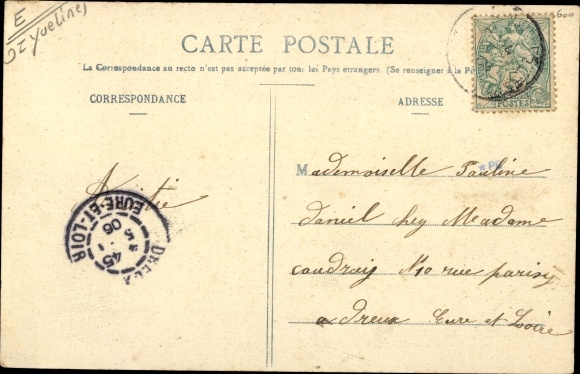 E
Yvelines
CARTE POSTALE
La Correspondance au recto n'est pas acceptée par tous les Pays étrangers. (Se renseigner à la
CORRESPONDANCE
ADRESSE
POSTES
Mademoiselle Pauline
daniel chez Madame
caudray N10 rue parisy
a Dreux Eure et Loire
Amitié
EURE-ET-LOIR
45
5
06